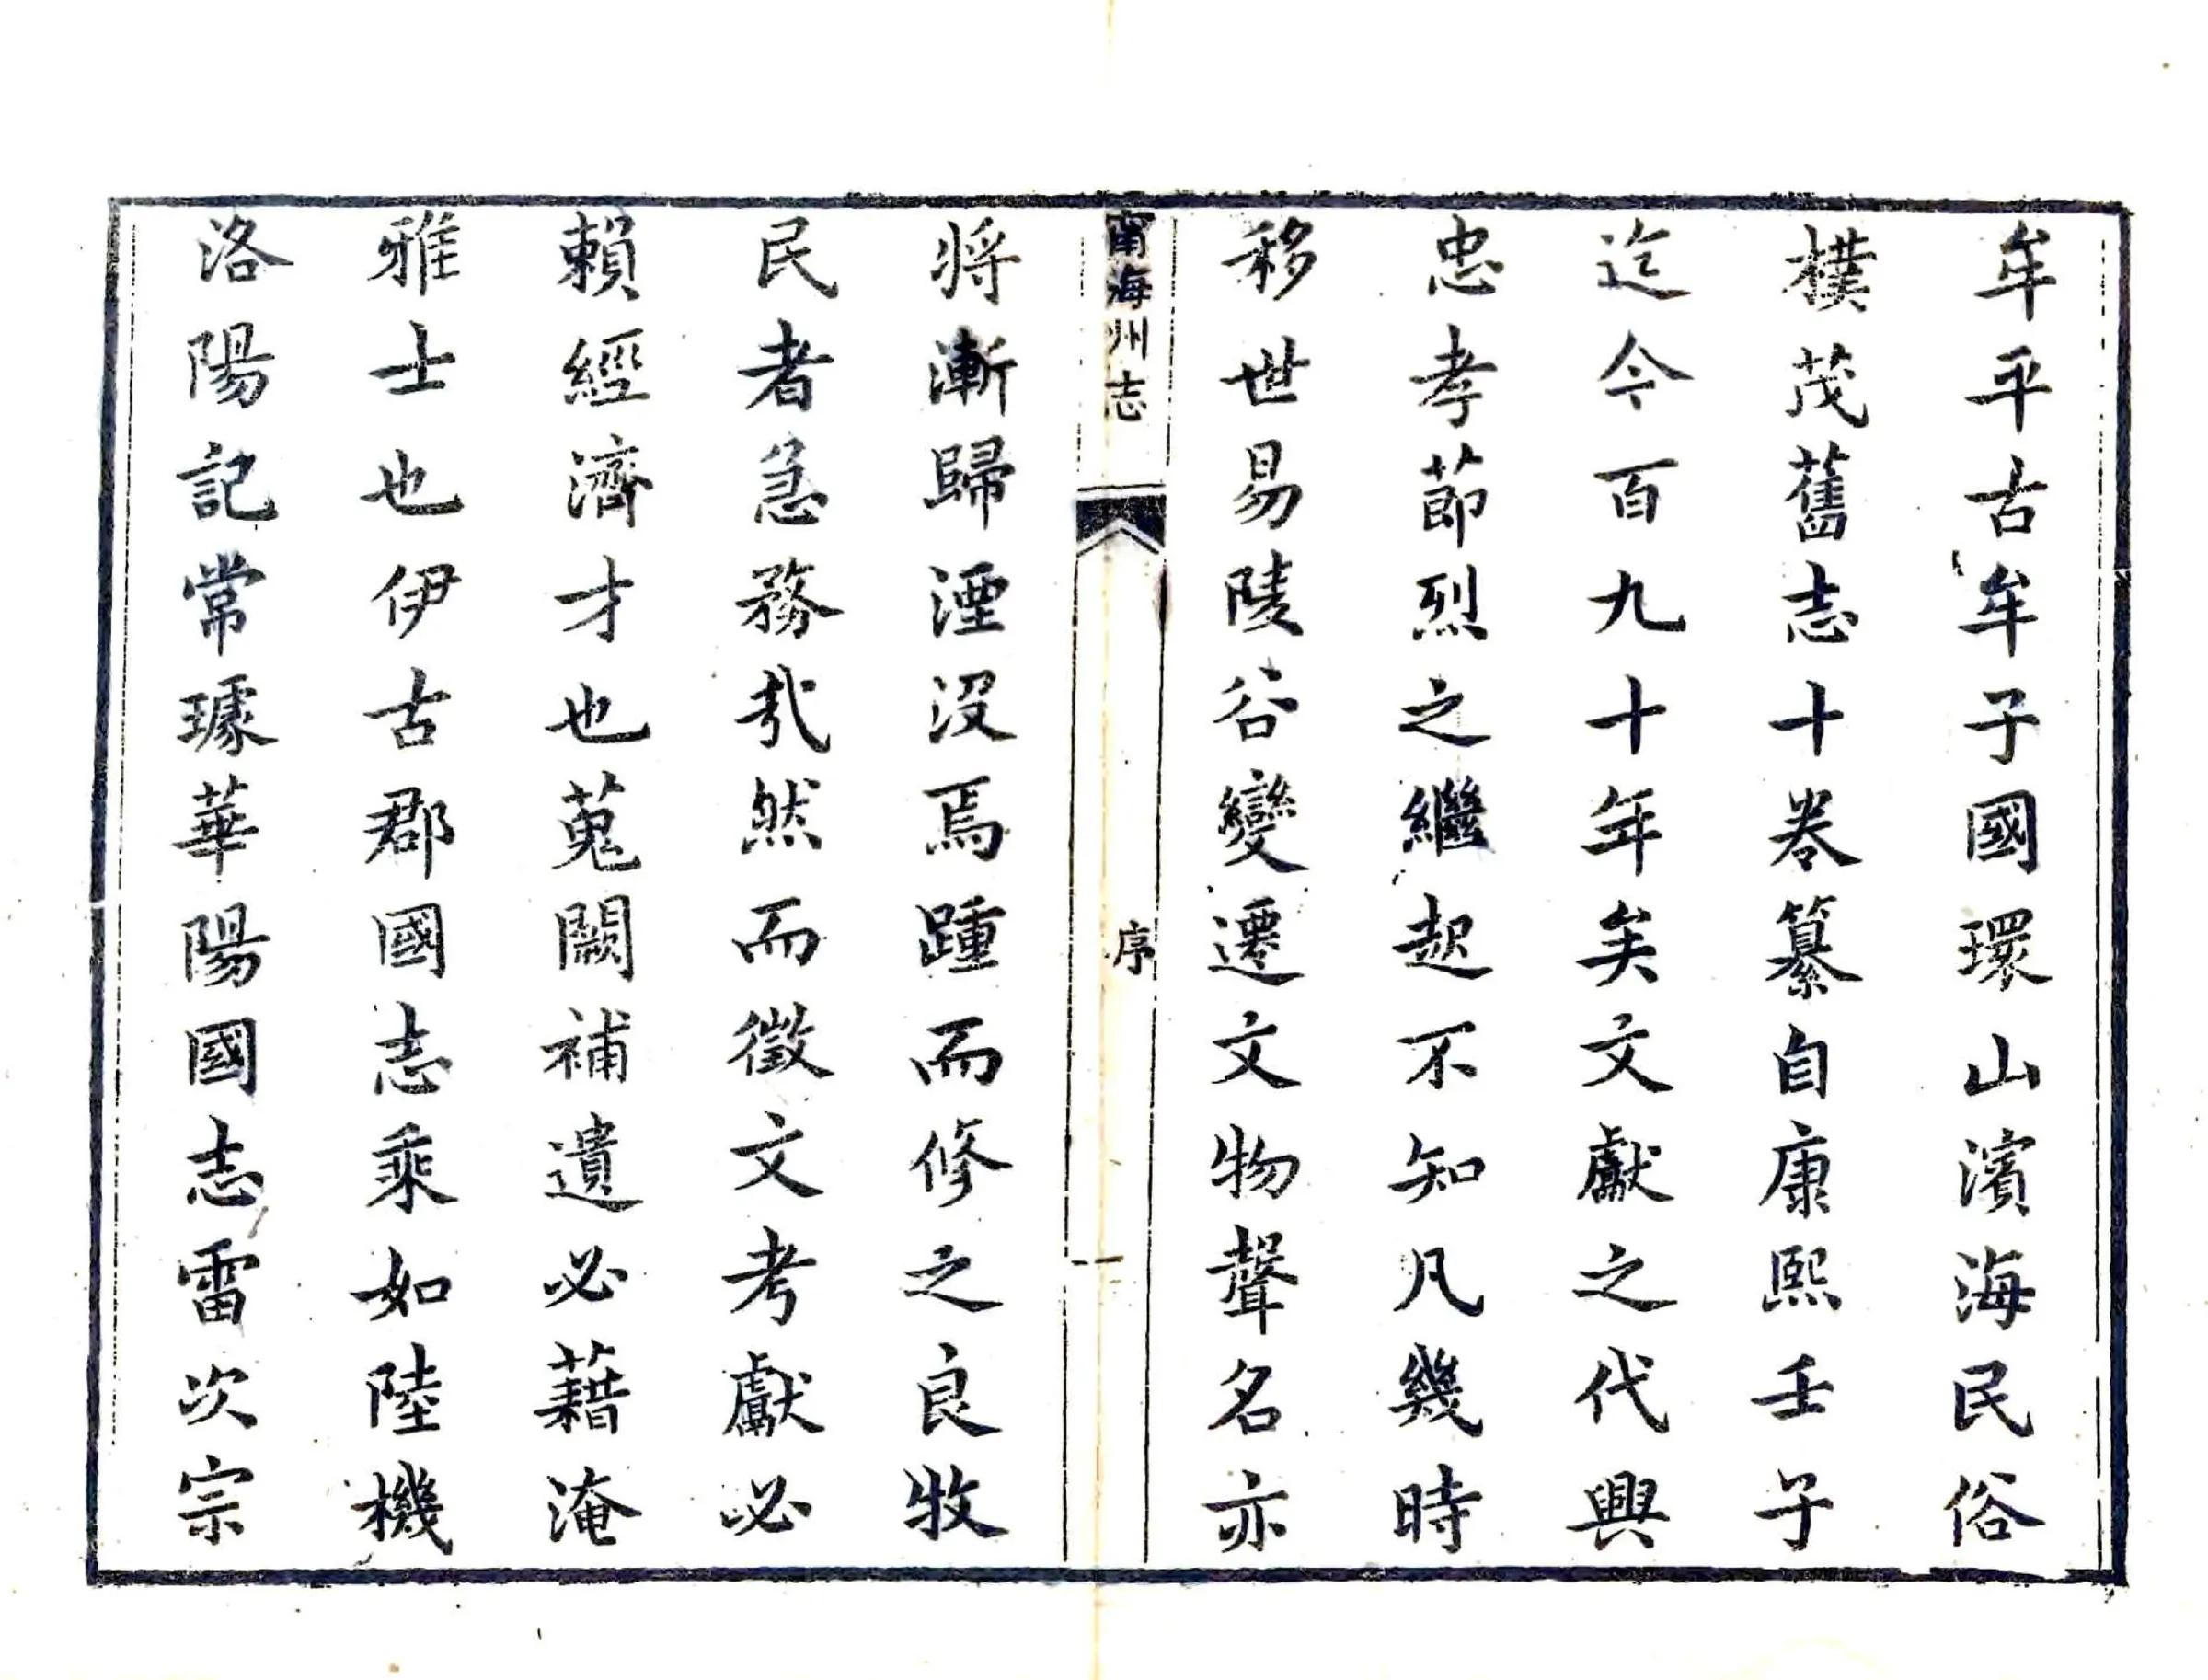 牟平古牟子國環山濱海民俗
樸茂舊志十卷纂自康熙壬子
迄今百九十年矣文獻之代興
忠孝節烈之繼起不知凡幾時
移世易陵谷變遷文物聲名亦
甯海州志
序
一
將漸歸湮沒焉踵而修之良牧
民者急務哉然而徵文考獻必
賴經濟才也蒐闕補遺必藉淹
雅士也伊古郡國志乘如陸機
洛陽記常璩華陽國志雷次宗